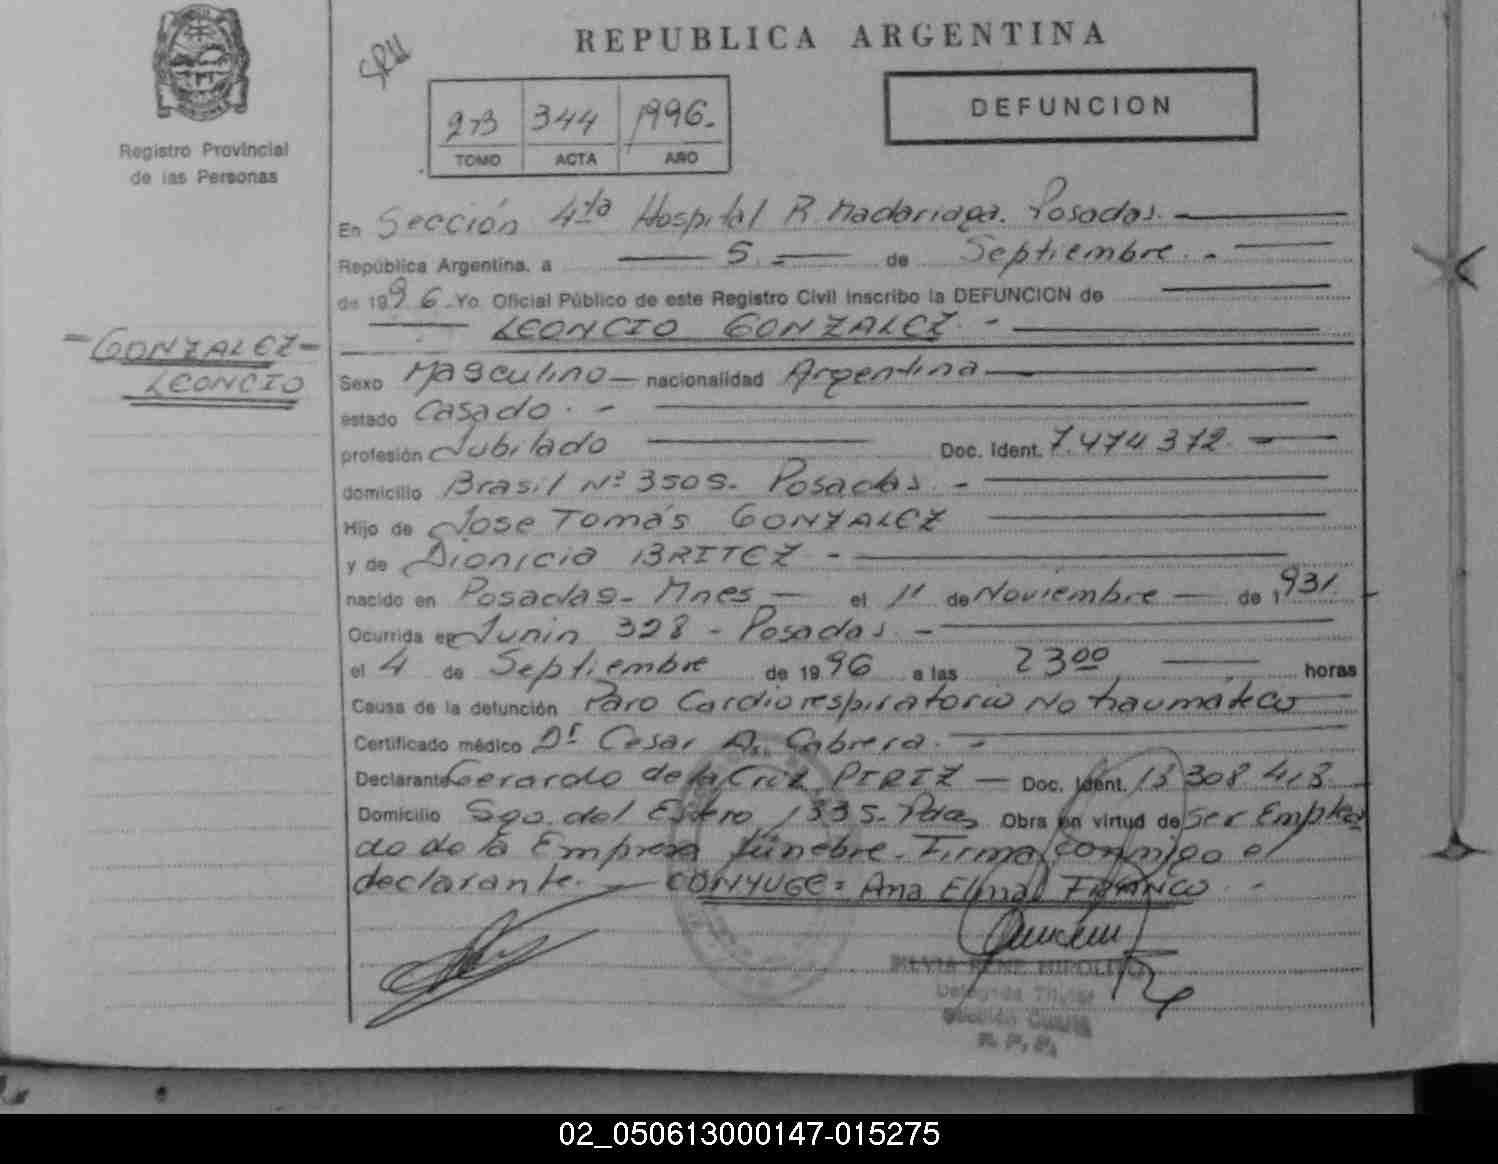 REPUBLICA ARGENTINA
DEFUNCION
273 344 1996.-
TOMO ACTA AÑO
Registro Provincial
de las Personas
En Sección 4ta Hospital R Madariaga. Posadas.
República Argentina, a 5 de Septiembre.-
de 1996 Yo. Oficial Público de este Registro Civil Inscribo la DEFUNCION de
LEONCIO GONZALEZ.-
-GONZALEZ-
LEONCIO
Sexo Masculino nacionalidad Argentina
estado Casado.-
profesión Jubilado Doc. Ident. 7.474372.
domicilio Brasil Nº 3505. Posadas.-
Hijo de Jose Tomás GONZALEZ
y de Dionicia BRITEZ-
nacido en Posadas- Mnes- el 11 de Noviembre de 1931.
Ocurrida en Junin 328 - Posadas.-
el 4 de Septiembre de 1996 a las 23 00 horas
Causa de la defunción Paro Cardiorespiratorio No traumático
Certificado médico Dr Cesar A. Cabrera.-
Declarante Gerardo de la Cruz PIRIZ - Doc. Ident. 13 308 413
Domicilio Sgo. del Estero 1335. Pdas Obra en virtud de Ser Emplea
do de la Empresa fúnebre. Firma conmigo el
declarante.- CONYUGE: Ana Elma FRANCO.-
SILVIA RENE HIPOLITO
Delegada Titular
Sección Cuarta
R. P. P.
02_050613000147-015275